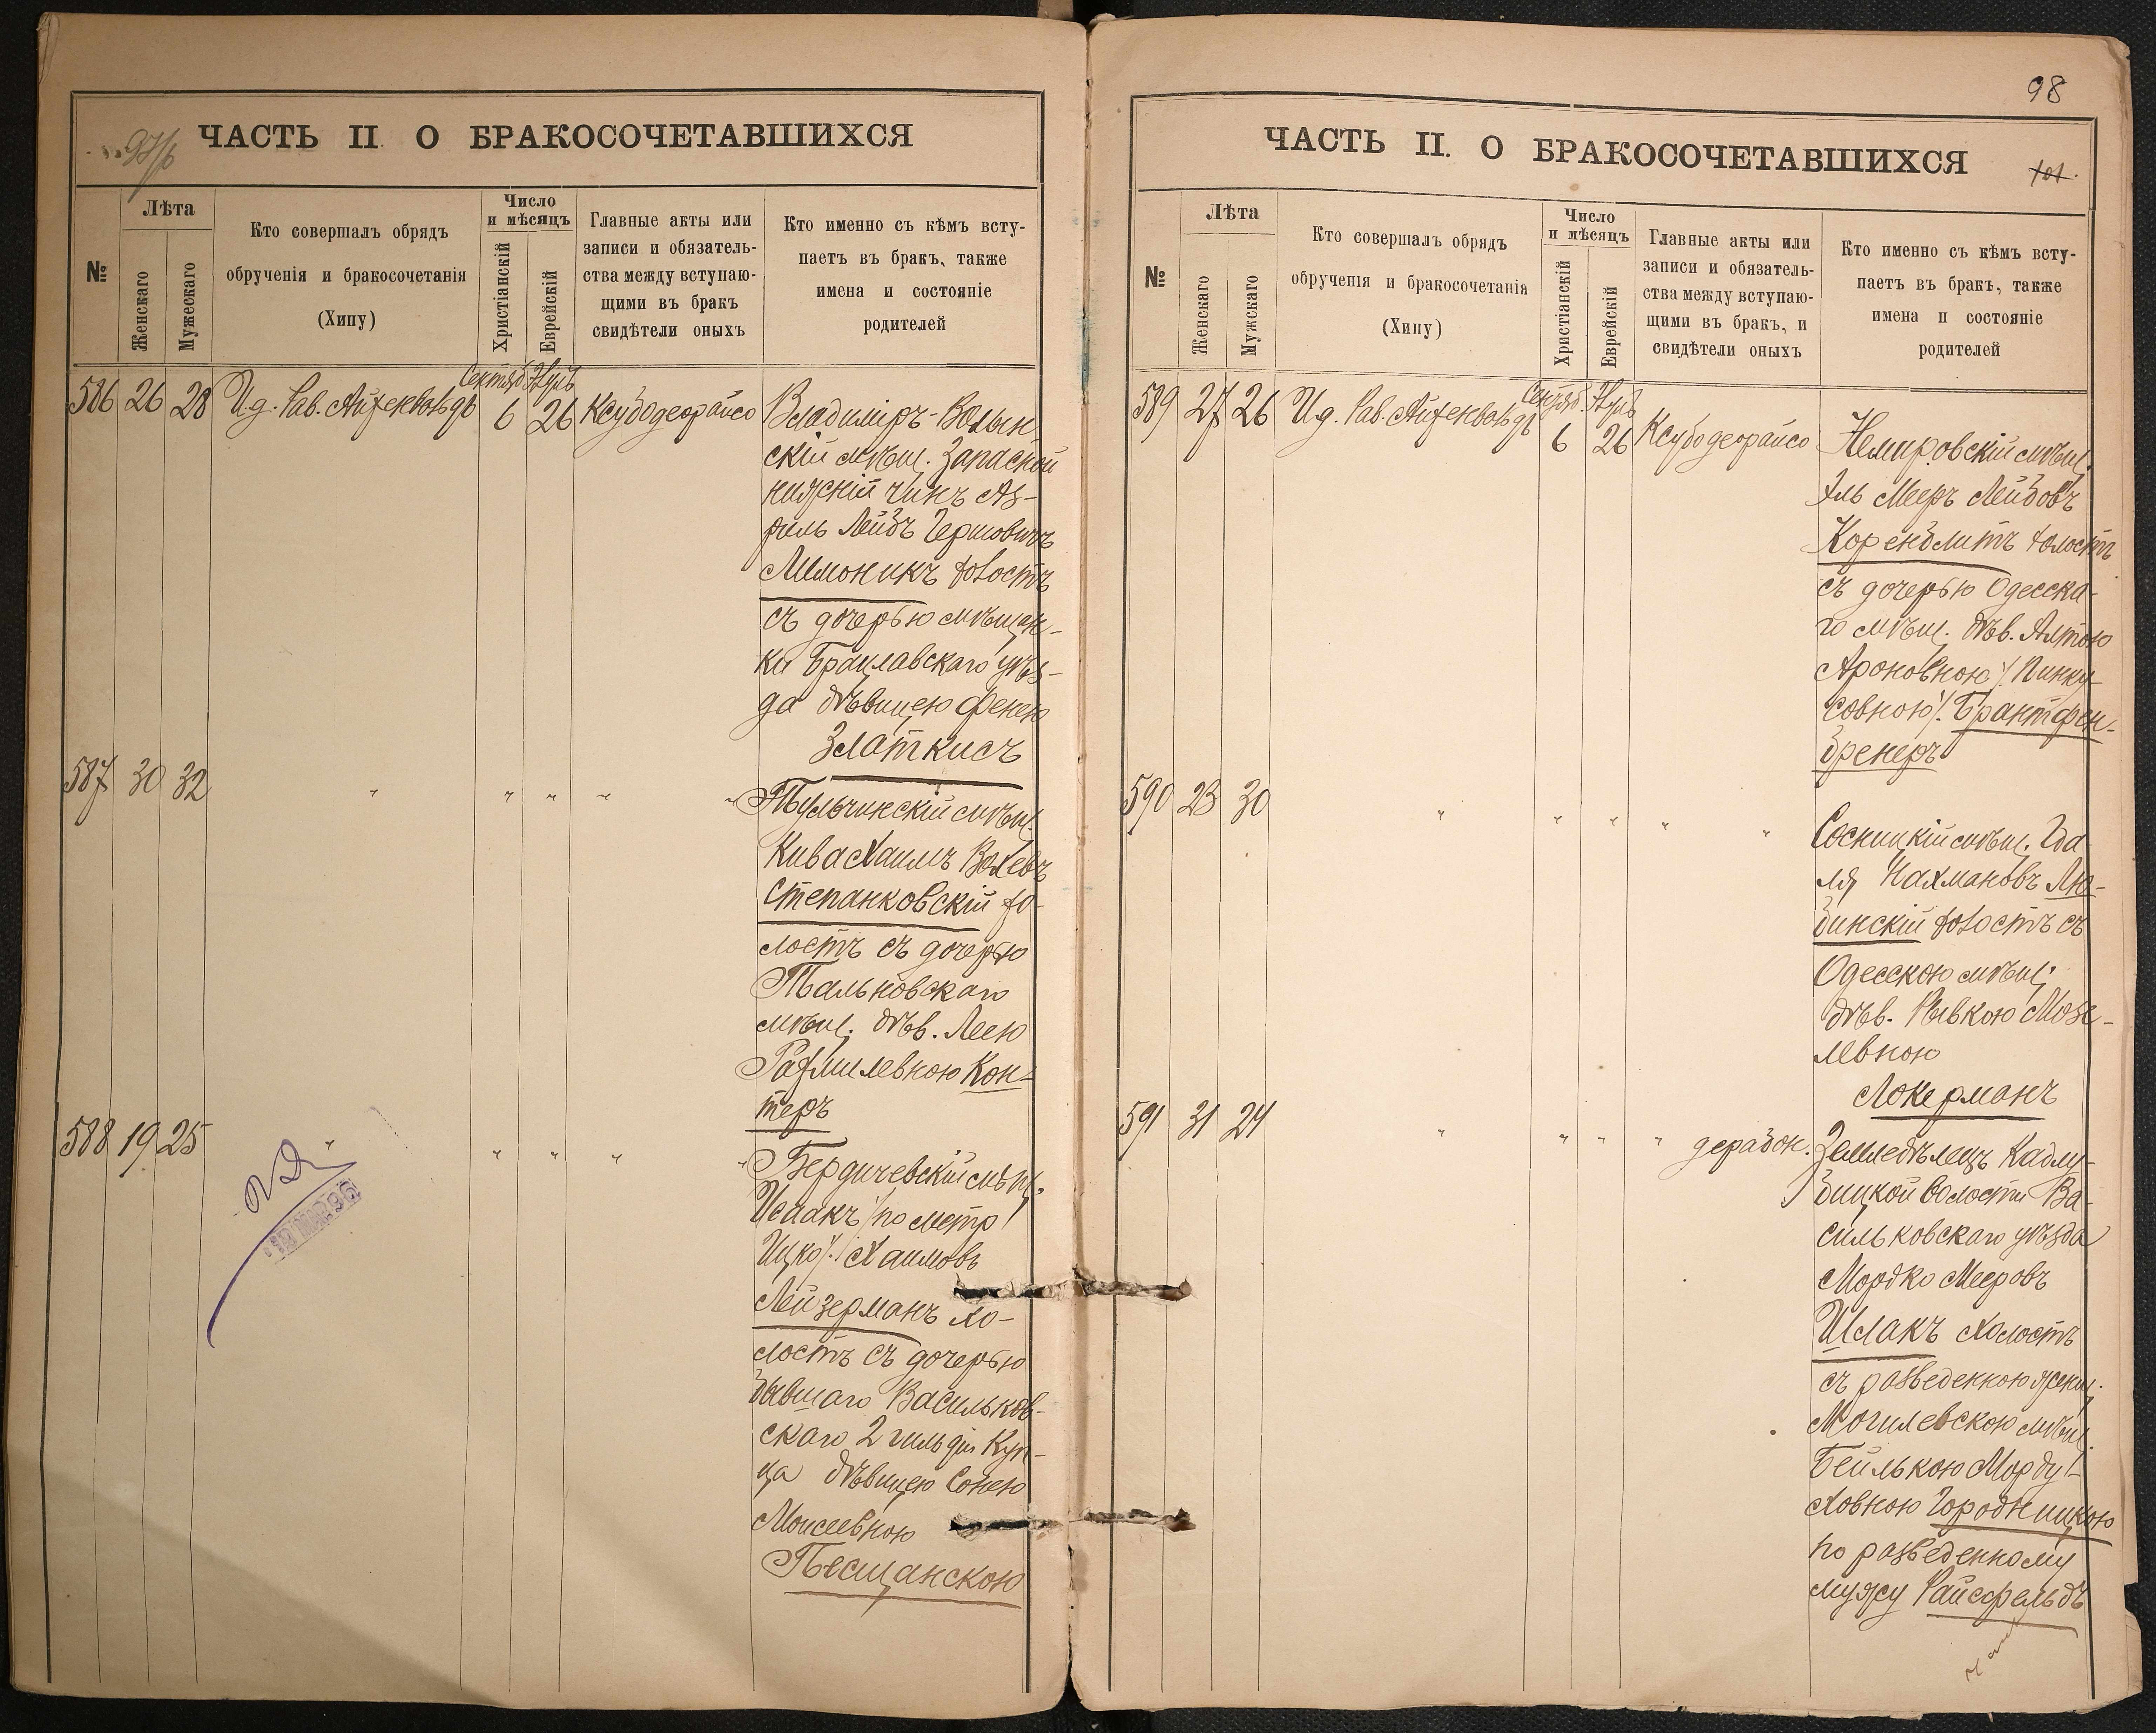 ЧАСТЬ II. О БРАКОСОЧЕТАВШИХСЯ
№
Лѣта
Женскаго
Мужескаго
Кто совершалъ обрядъ
обрученія и бракосочетанія
(Хипу)
Число
и мѣсяцъ
Христіанскій
Еврейскій
Главные акты или
записи и обязатель-
ства между вступаю-
щими въ бракъ
свидѣтели оныхъ
Кто именно съ кѣмъ всту-
паетъ въ бракъ, также
имена и состояніе
родителей
586 26 28 И.д. Рав. Айзенвальдъ
Сентяб 6
Элулъ 26
Ксубодеорайсо
Владиміръ-Волын
скій мѣщ. Запасной
нижній чинъ Аз-
риль Лейбъ Гершовичъ
Мемоникъ холостъ
съ дочерью мѣщан-
ки Брацлавскаго уѣз-
да дѣвицею Фенею
Златкисъ
587 30 32 " " " " "
Тульчинскій мѣщ.
Кива Хаимъ Волевъ
Степанковскій хо-
лостъ съ дочерью
Тальновскаго
мѣщ. дѣв. Леею
Рахмилевною Кон-
теръ
588 19 25 " " " " "
Бердичевскій мѣщ.
Исаакъ /по метр
Ицко/. Хаимовъ
Лейзерманъ хо-
лостъ съ дочерью
бывшаго Васильков-
скаго 2 гильдіи Куп-
ца дѣвицею Сонею
Моисеевною
Песчанскою
10 MAR 96
98
ЧАСТЬ II. О БРАКОСОЧЕТАВШИХСЯ
101.
№
Лѣта
Женскаго
Мужскаго
Кто совершалъ обрядъ
обрученія и бракосочетанія
(Хипу)
Число
и мѣсяцъ
Христіанскій
Еврейскій
Главные акты или
записи и обязатель-
ства между вступаю-
щими въ бракъ, и
свидѣтели оныхъ
Кто именно съ кѣмъ всту-
паетъ въ бракъ, также
имена и состояніе
родителей
589 27 26 И.д. Рав. Айзенвальдъ
Сентяб. 6
Элулъ 26
Ксубодеорайсо
Немировскій мѣщ.
Эль Мееръ Лейбовъ
Коренблитъ холостъ
съ дочерью Одесска-
го мѣщ. дѣв. Алтою
Ароновною /. Пинку-
совною/. Брантфен-
бренеръ
590 23 30 " " " " "
Сосницкій мѣщ. Гда-
ля Нахмановъ Лю-
бинскій холостъ съ
Одесскою мѣщ.
дѣв. Рывкою Мозе-
левною
Локерманъ
591 31 24 " " " " дерабон.
Земледѣлецъ Кадлу-
бицкой волости Ва-
сильковскаго уѣзда
Мордко Мееровъ
Шлакъ Холостъ
съ разведенною женщ.
Могилевскою мѣщ.
Бейлькою Морду-
ховною Городницкою
по разведенному
мужу Райсфельдъ